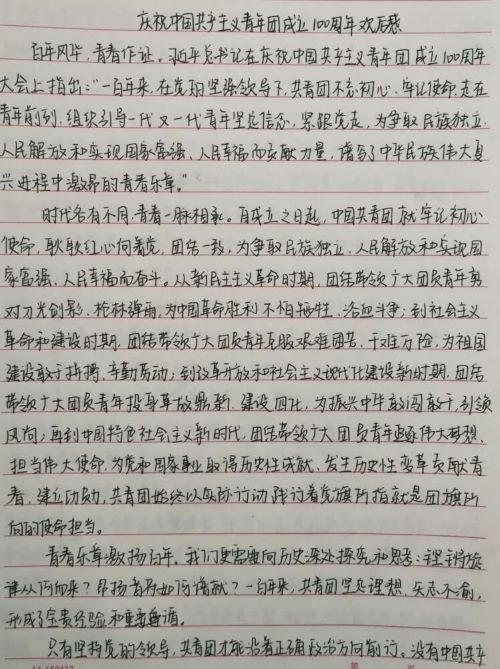 庆祝中国共产主义青年团成立100周年观后感
百年风华,青春作证。习近平总书记在庆祝中国共产主义青年团成立100周年
大会上指出:“一百年来,在党的坚强领导下,共青团不忘初心、牢记使命,走在
青年前列,组织引导一代又一代青年坚定信念、紧跟党走,为争取民族独立、
人民解放和实现国家富强、人民幸福而贡献力量,谱写了中华民族伟大复
兴进程中激昂的青春乐章。”
时代各有不同,青春一脉相承。自成立之日起,中国共青团就牢记初心
使命,耿耿红心向着党,团结一致,为争取民族独立、人民解放和实现国
家富强、人民幸福而奋斗。从新民主主义革命时期,团结带领广大团员青年面
对刀光剑影、枪林弹雨,为中国革命胜利不怕牺牲、浴血斗争;到社会主义
革命和建设时期,团结带领广大团员青年克服艰难困苦、千难万险,为祖国
建设敢于拼搏、辛勤劳动;到改革开放和社会主义现代化建设新时期,团结
带领广大团员青年投身革故鼎新、建设四化,为振兴中华敢闯敢干、引领
风尚;再到中国特色社会主义新时代,团结带领广大团员青年逐伟大梦想、
担当伟大使命,为党和国家事业取得历史性成就、发生历史性变革贡献青
春、建立功勋,共青团始终以实际行动践行着党旗所指就是团旗所
向的使命担当。
青春乐章激扬百年,我们更需要向历史深处探究和思考:铿锵旋
律从何而来?昂扬音符如何谱就?一百年来,共青团坚定理想、矢志不渝,
形成了宝贵经验和重要遵循。
只有坚持党的领导,共青团才能沿着正确政治方向前行。没有中国共产